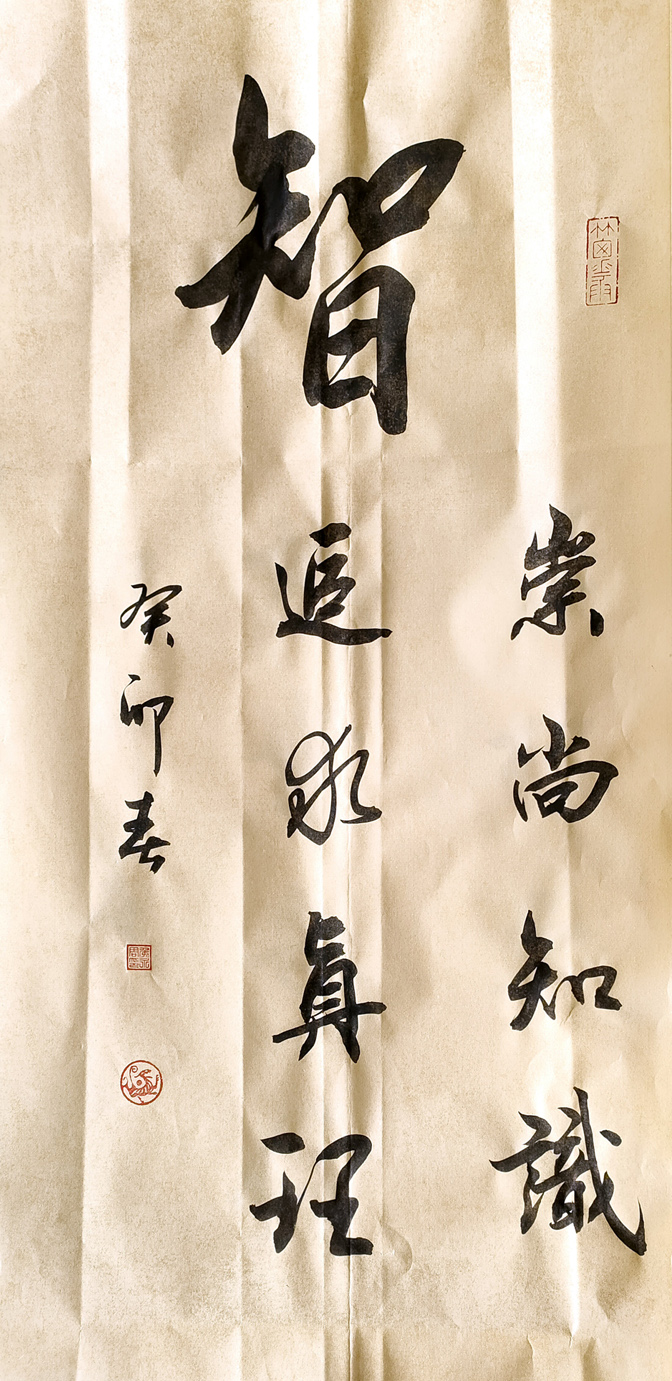 智
崇尚知識
追求真理
癸卯春